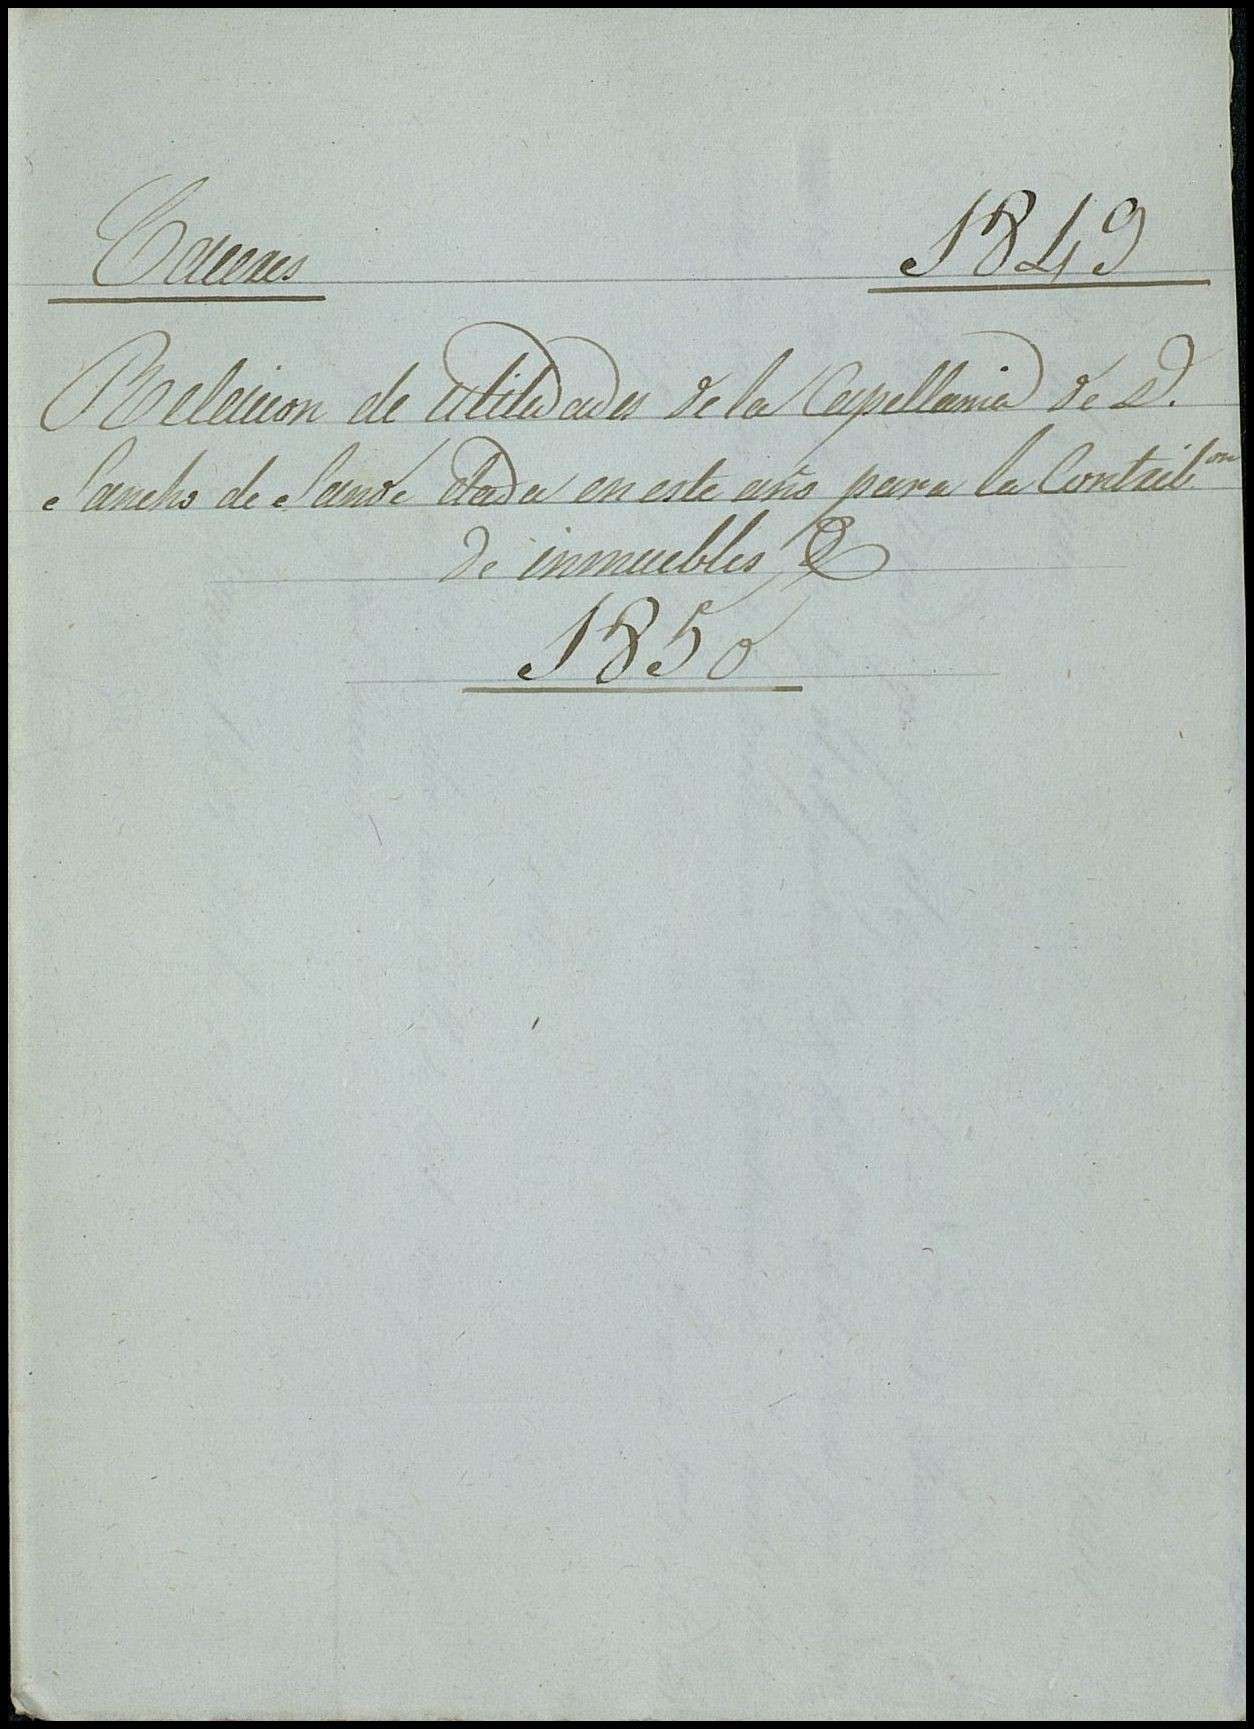 Cáceres 1849
Relacion de utilidades de la Capellania de D.
Sancho de Sande dada en este año para la Contrib.on
de inmuebles &
1850